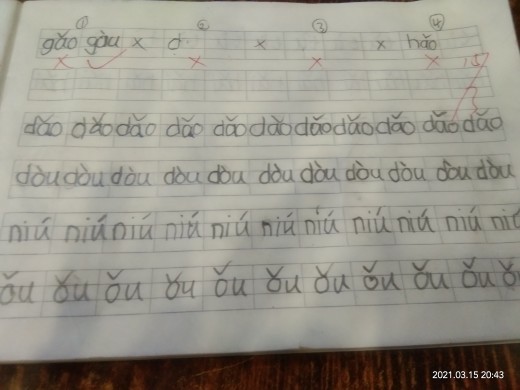 ① ② ③ ④
gǎo gàu × d × × hǎo
× ✓ × × × 15
dǎo dǎo dǎo dǎo dǎo dǎo dǎo dǎo dǎo dǎo dǎo
dòu dòu dòu dòu dòu dòu dòu dòu dòu dòu dòu
niú niú niú niú niú niú niú niú niú niú niú
ǒu ǒu ǒu ǒu ǒu ǒu ǒu ǒu ǒu ǒu ǒ
2021.03.15 20:43